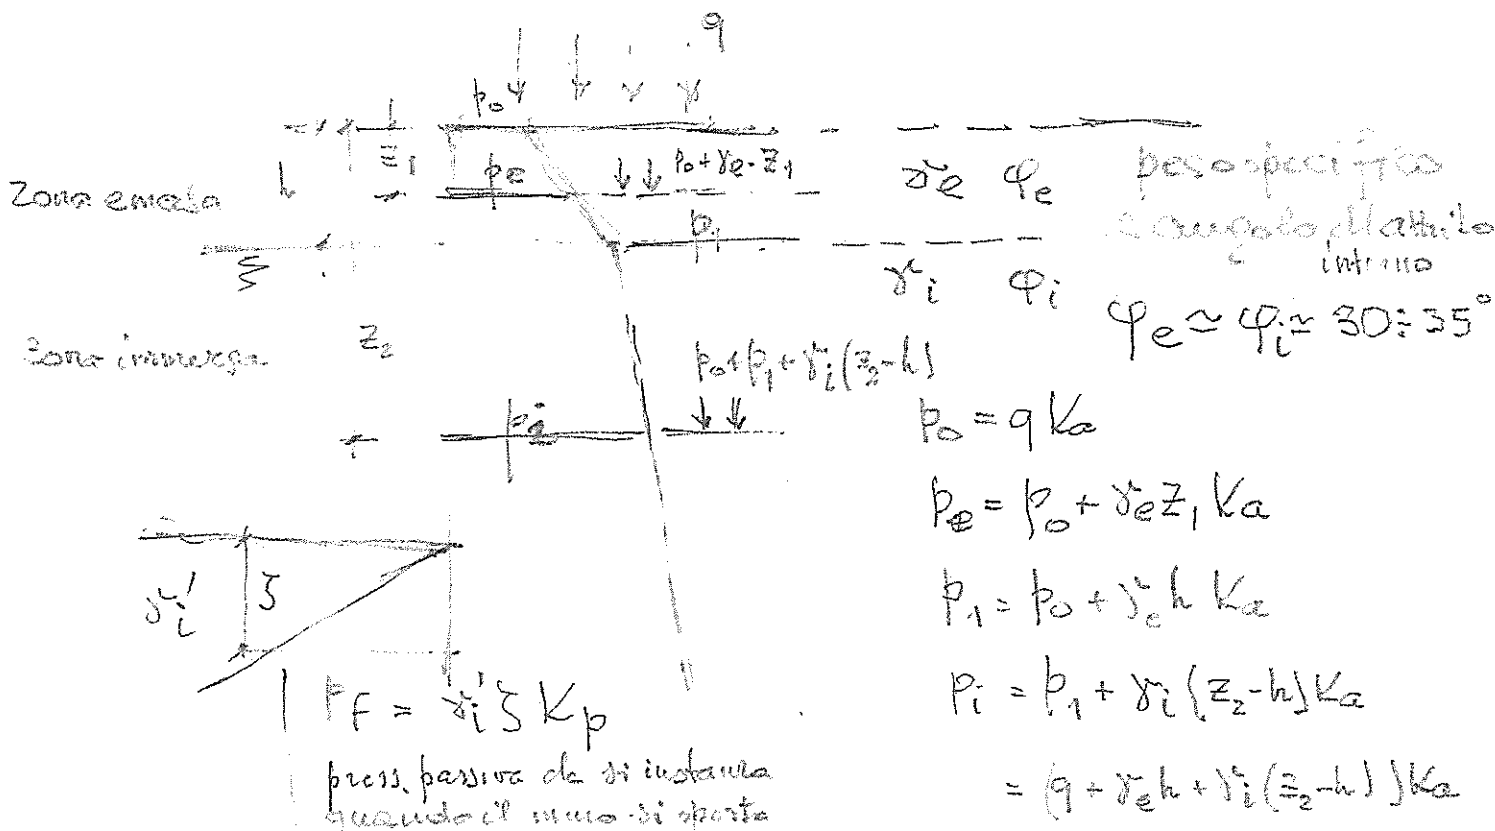 q
p₀
z₁
pe
p₀ + γe · z₁
γe φe
peso specifico
Zona emersa
h
e angolo d'attrito
interno
p₁
γi φi
φe ≃ φi ≃ 30÷35°
Zona immersa
z₂
p₀ + p₁ + γi (z₂-h)
pi
p₀ = q Ka
pe = p₀ + γe z₁ Ka
p₁ = p₀ + γe h Ka
pi = p₁ + γi (z₂-h) Ka
= (q + γe h + γi (z₂-h)) Ka
γi' ζ
PF = γi' ζ Kp
press. passiva che si instaura
quando il muro si sposta